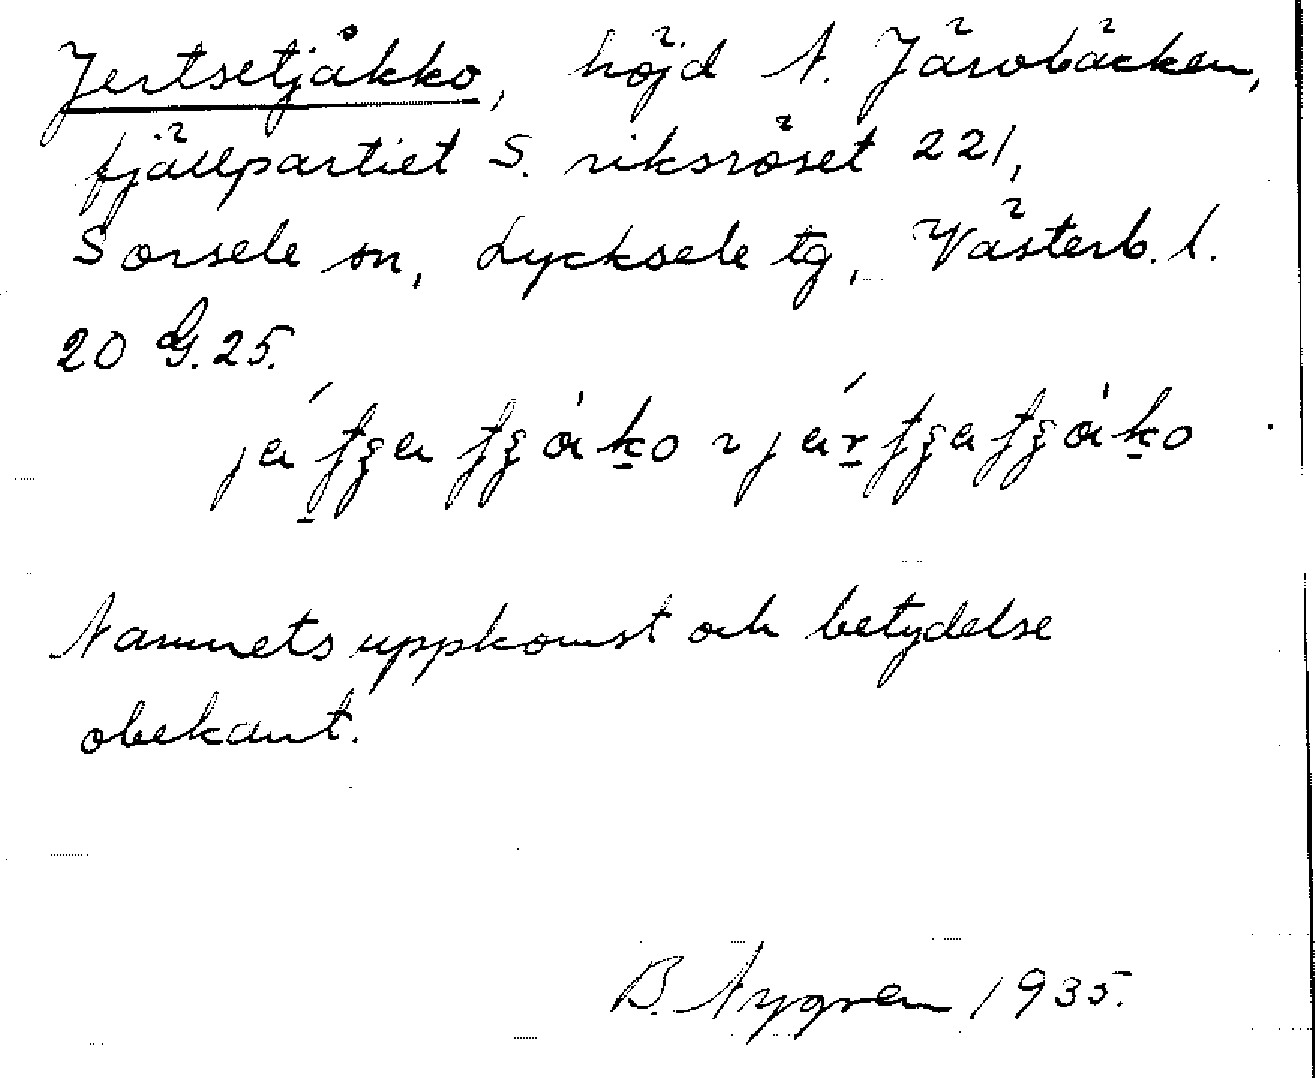 Jertsetjåkko, höjd N. Järvbäcken,
fjällpartiet S. riksröset 221,
Sorsele sn, Lycksele tg, Västerb. l.
20 G. 25.
Namnets uppkomst och betydelse
obekant.
B. Nygren 1935.